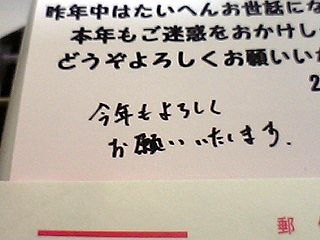 昨年中はたいへんお世話にな
本年もご迷惑をおかけし
どうぞよろしくお願いい
2
今年もよろしく
お願いいたします.
郵